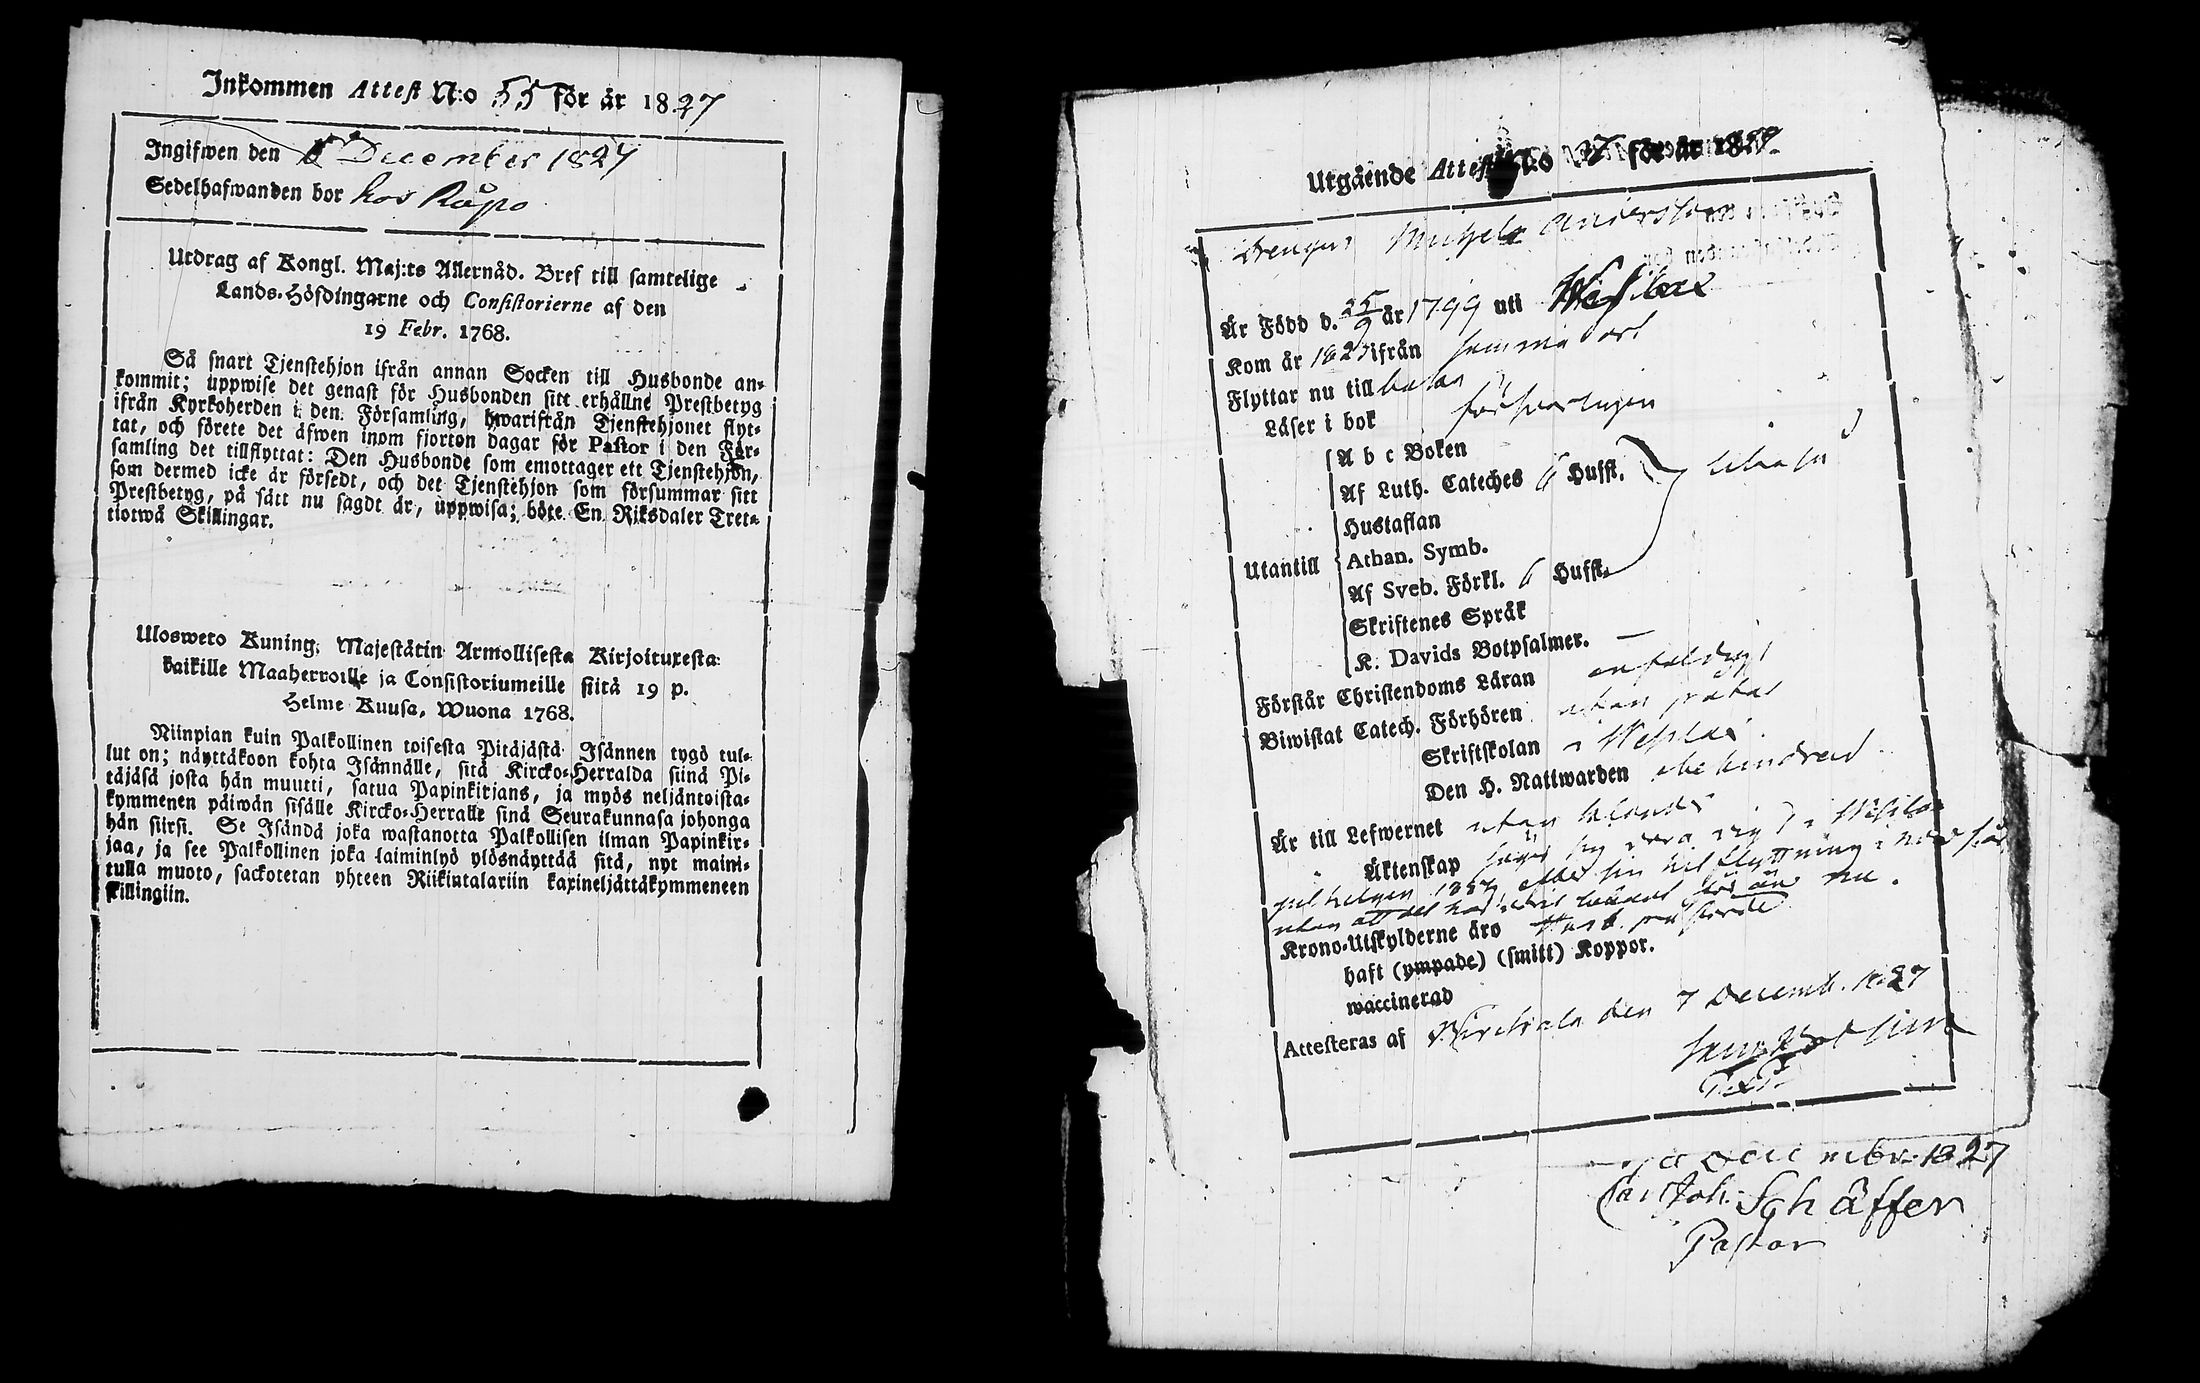 Inkommen Attest N:o 55 för år 1827
Ingifwen den December 1827
Sedelhafwanden bor hos Råpo
Utdrag af Kongl. Maj:ts Allernåd. Bref till samtelige
Lands-Höfdingarne och Consistorierne af den
19 Febr. 1768.
Så snart Tjenstehjon ifrån annan Socken till Husbonde an-
kommit; uppwise det genast för Husbonden sitt erhållne Prestbetyg
ifrån Kyrkoherden i den Församling, hwarifrån Tjenstehjonet flyt-
tat, och förete det äfwen inom fjorton dagar för Pastor i den För-
samling det tillflyttat: Den Husbonde som emottager ett Tjenstehjon,
som dermed icke är försedt, och det Tjenstehjon som försummar sitt
Prestbetyg, på sätt nu sagdt är, uppwisa; böte En Riksdaler Tret-
tiotwå Skillingar.
Ulosweto Kuning. Majestätin Armollisesta Kirjoituxesta
kaikille Maaherroille ja Consistoriumeille siitä 19 p.
Helme Kuusa, Wuona 1768.
Niinpian kuin Palkollinen toisesta Pitäjästä Isännen tygö tul-
lut on; näyttäkoon kohta Isännälle, sitä Kircko-Herralda siinä Pi-
täjäsä josta hän muutti, satua Papinkirjans, ja myös neljäntoista-
kymmenen päiwän sisälle Kircko-Herralle sinä Seurakunnasa johonga
hän siirsi. Se Isändä joka wastanotta Palkollisen ilman Papinkir-
jaa, ja see Palkollinen joka laiminlyö ylösnäyttää sitä, nyt maini-
tulla muoto, sackotetan yhteen Riikintalariin kaxineljättäkymmeneen
killingiin.
Utgående Attest N:o 37 för år 1827
Drengen Michel Andersson
Är Född d. 25/9 år 1799 uti Wesilax
Kom år 1827 ifrån samma ort
Flyttar nu till
Läser i bok försvarligen
A b c Boken
Af Luth. Cateches 6 Hufst.
Hustaflan
Utantill Athan. Symb.
Af Sveb. Förkl. 6 Hufst.
Skriftenes Språk
K. Davids Botpsalmer. —
Förstår Christendoms Läran enfaldigt
Biwistat Catech. Förhören
Skriftskolan i Wesilax
Den H. Nattwarden obehindrad
Är till Lefwernet utan
Äktenskap säger sig vara i Wesilax
julhelgen 1827, efter sin hitflyttning i
utan att det har nu.
Krono-Utskylderne äro
haft (ympade) (smitt) Koppor.
waccinerad
Attesteras af den 7 Decemb. 1827
P. L.
Decembr. 1827
Joh. Schäffer
Pastor